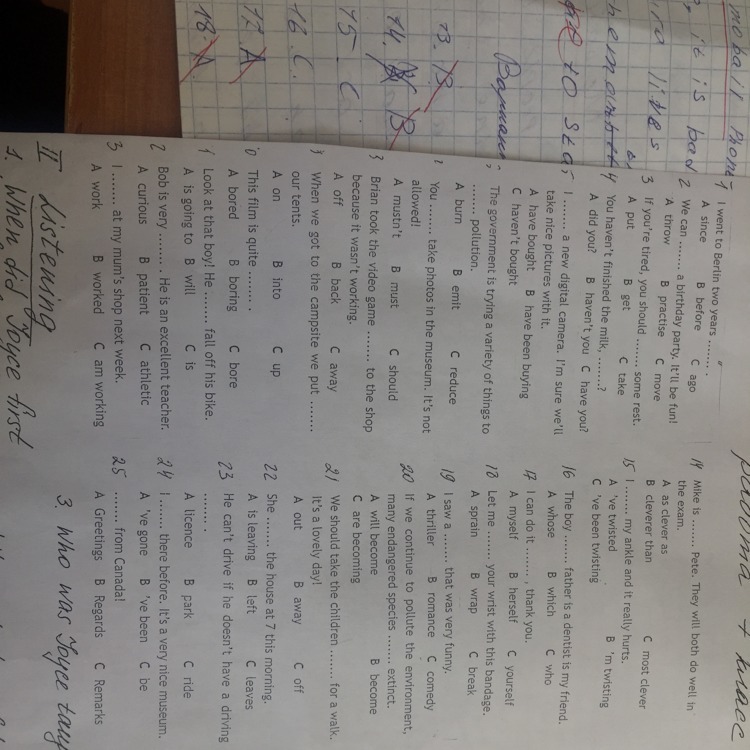 mobail Phone
it is bad
lives
to
Вариан
13. B.
14. B
15. C
16 C.
17. A
18. A.
1 I went to Berlin two years ........ .
A since B before C ago
2 We can ........ a birthday party. It'll be fun!
A throw B practise C move
3 If you're tired, you should ........ some rest.
A put B get C take
4 You haven't finished the milk, ........?
A did you? B haven't you C have you?
I ........ a new digital camera. I'm sure we'll
take nice pictures with it.
A have bought B have been buying
C haven't bought
The government is trying a variety of things to
........ pollution.
A burn B emit C reduce
You ........ take photos in the museum. It's not
allowed!
A mustn't B must C should
Brian took the video game ........ to the shop
because it wasn't working.
A off B back C away
When we got to the campsite we put ........
our tents.
A on B into C up
This film is quite ........ .
A bored B boring C bore
Look at that boy! He ........ fall off his bike.
A is going to B will C is
2 Bob is very ........ . He is an excellent teacher.
A curious B patient C athletic
3 I ........ at my mum's shop next week.
A work B worked C am working
14 Mike is ........ Pete. They will both do well in
the exam.
A as clever as
B cleverer than C most clever
15 I ........ my ankle and it really hurts.
A 've twisted B 'm twisting
C 've been twisting
16 The boy ........ father is a dentist is my friend.
A whose B which C who
17 I can do it ........, thank you.
A myself B herself C yourself
18 Let me ........ your wrist with this bandage.
A sprain B wrap C break
19 I saw a ........ that was very funny.
A thriller B romance C comedy
20 If we continue to pollute the environment,
many endangered species ........ extinct.
A will become B become
C are becoming
21 We should take the children ........ for a walk.
It's a lovely day!
A out B away C off
22 She ........ the house at 7 this morning.
A is leaving B left C leaves
23 He can't drive if he doesn't have a driving
........ .
A licence B park C ride
24 I ........ there before. It's a very nice museum.
A 've gone B 've been C be
25 ........ from Canada!
A Greetings B Regards C Remarks
II Listening
1. When did Joyce first
3. Who was Joyce